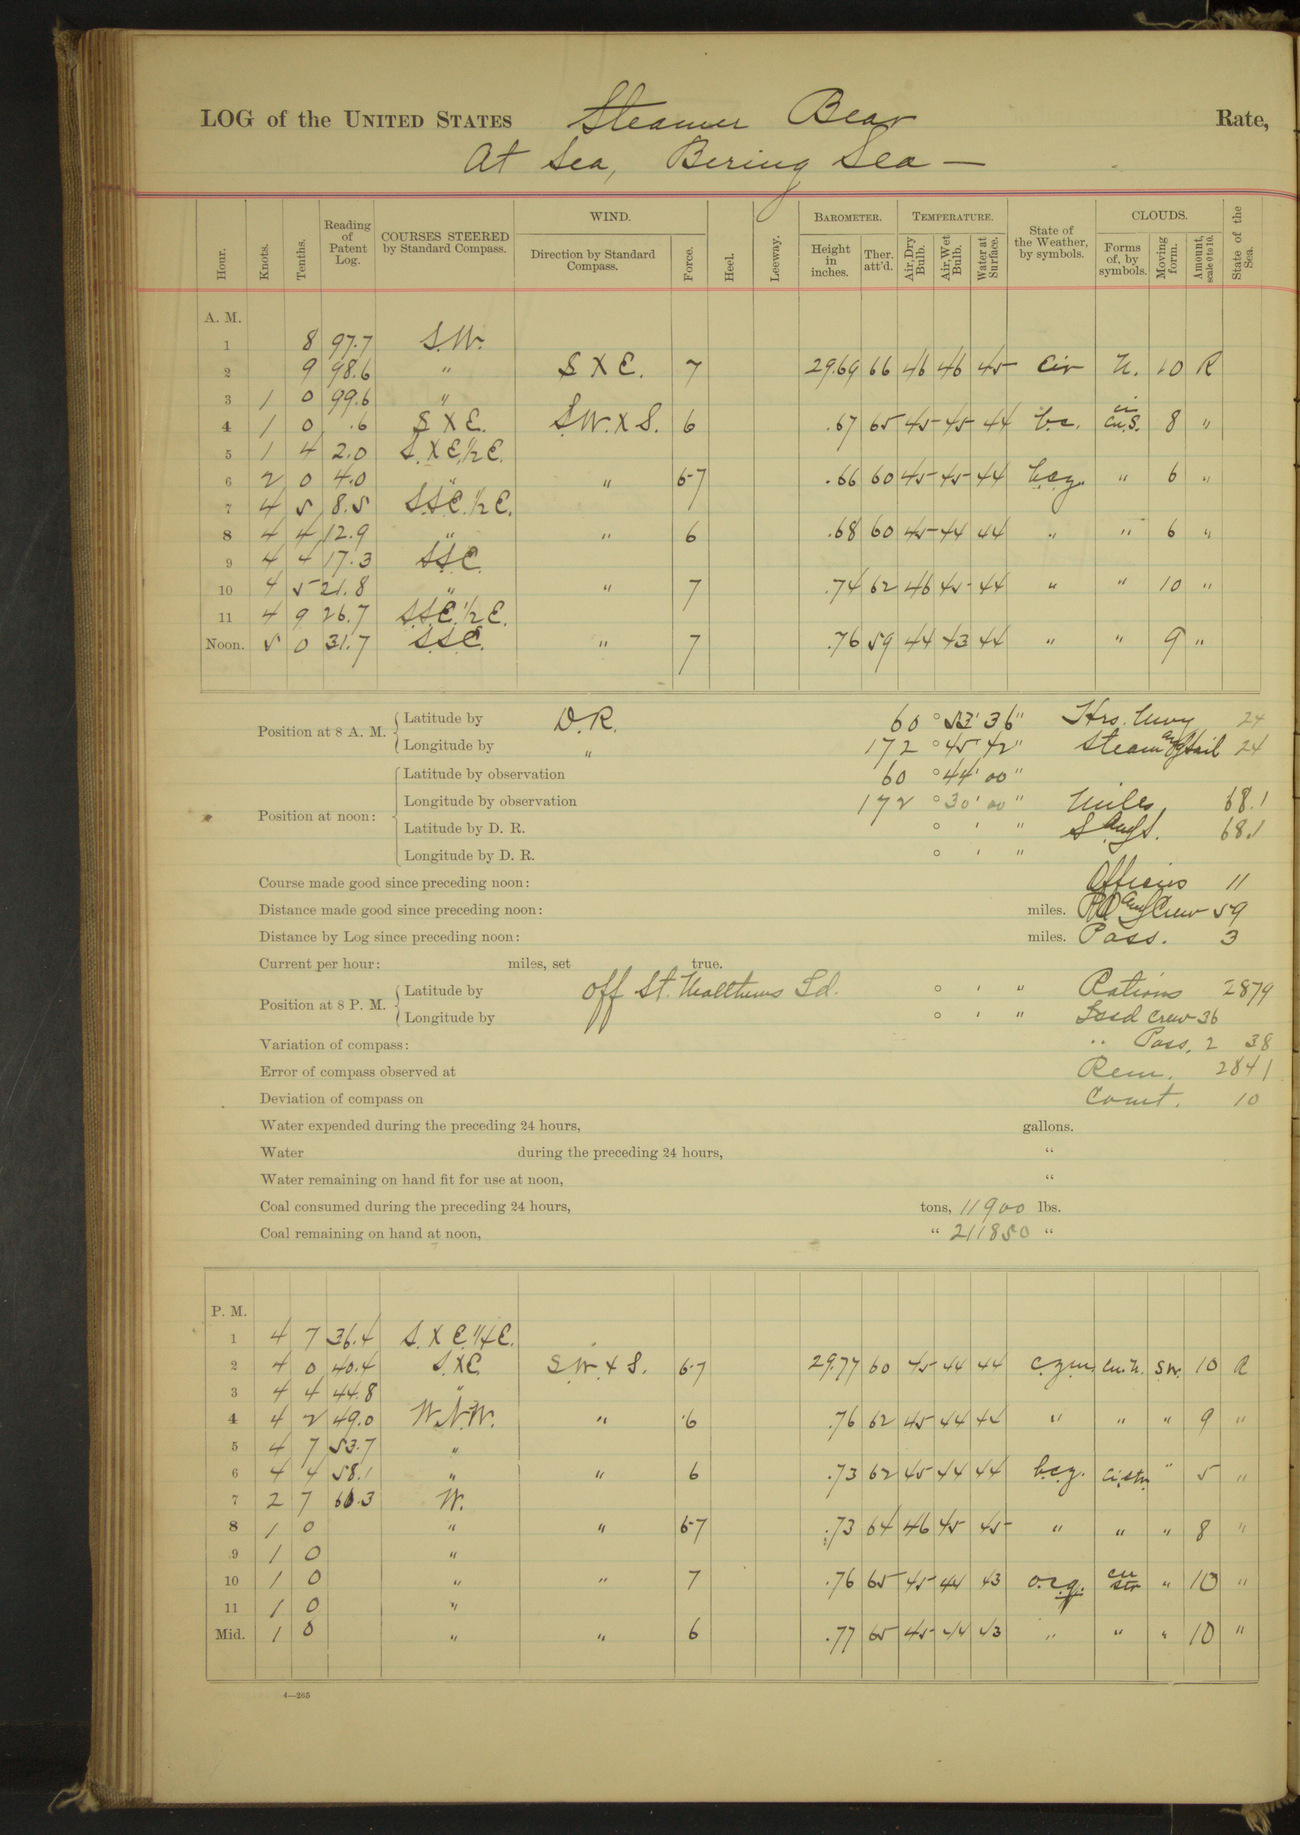 LOG of the UNITED STATES Steamer Bear Rate,
At Sea, Bering Sea —
Hour. Knots. Tenths. Reading of Patent Log. COURSES STEERED by Standard Compass. WIND. Direction by Standard Compass. Force. Heel. Leeway. BAROMETER. Height in inches. Ther. att'd. TEMPERATURE. Air, Dry Bulb. Air, Wet Bulb. Water at Surface. State of the Weather, by symbols. CLOUDS. Forms of, by symbols. Moving form. Amount, scale 0 to 10. State of the Sea.
A. M.
1 8 97.7 S.W.
2 9 98.6 " S X E. 7 29.69 66 46 46 45 N. 10 R
3 1 0 99.6 "
4 1 0 .6 S X E. S.W. X S. 6 .67 65 45 45 44 b.c. ci cu.S. 8 "
5 1 4 2.0 S. X E. 1/2 E.
6 2 0 4.0 " " 6-7 .66 60 45 45 44 b.c.g. " 6 "
7 4 5 8.5 S.S.E. 1/2 E.
8 4 4 12.9 " " 6 .68 60 45 44 44 " " 6 "
9 4 4 17.3 S.S.E.
10 4 5 21.8 " " 7 .74 62 46 45 44 " " 10 "
11 4 9 26.7 S.S.E. 1/2 E.
Noon. 5 0 31.7 S.S.E. " 7 .76 59 44 43 44 " " 9 "
Position at 8 A. M. Latitude by D.R. 60 ° 53' 36" Hrs. Nwy 24
Longitude by " 172 ° 45' 42" Steam and Sail 24
Position at noon: Latitude by observation 60 ° 44' 00"
Longitude by observation 172 ° 30' 00" Miles 68.1
Latitude by D. R. ° ' " S. and S. 68.1
Longitude by D. R. ° ' "
Course made good since preceding noon: Officers 11
Distance made good since preceding noon: miles. and Crew 59
Distance by Log since preceding noon: miles. Pass. 3
Current per hour: miles, set true.
Position at 8 P. M. Latitude by off St. Matthews Id. ° ' " Rations 2879
Longitude by ° ' " Issd Crew 36
Variation of compass: " Pass. 2 38
Error of compass observed at Rem. 2841
Deviation of compass on Comt. 10
Water expended during the preceding 24 hours, gallons.
Water during the preceding 24 hours, "
Water remaining on hand fit for use at noon, "
Coal consumed during the preceding 24 hours, tons, 11900 lbs.
Coal remaining on hand at noon, " 211850 "
P. M.
1 4 7 36.4 S. X E. 1/4 E.
2 4 0 40.4 S. X E. S.W. X S. 6-7 29.77 60 45 44 44 c.g.m. cu.N. S.W. 10 R
3 4 4 44.8 "
4 4 2 49.0 W.N.W. " 6 .76 62 45 44 44 " " " 9 "
5 4 7 53.7 "
6 4 4 58.1 " " 6 .73 62 45 44 44 b.c.g. ci.str. " 5 "
7 2 7 60.3 W.
8 1 0 " " 6-7 .73 64 46 45 45 " " " 8 "
9 1 0 "
10 1 0 " " 7 .76 65 45 44 43 cu str " 10 "
11 1 0 "
Mid. 1 0 " " 6 .77 65 45 44 43 " " " 10 "
4—265